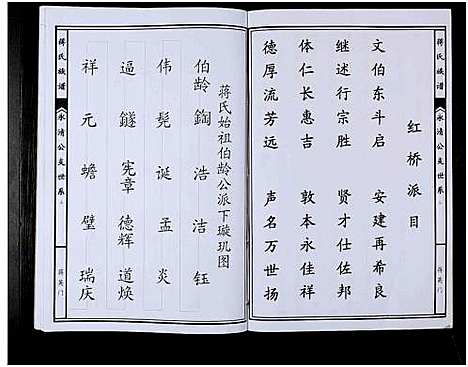 蒋氏族谱
永清公支世系
蒋英门
红桥派目
文伯东斗启 安建再希良
继述行宗胜 贤才仕佐邦
体仁长惠吉 敦本永佳祥
德厚流芳远 声名万世扬
蒋氏始祖伯龄公派下璇玑图
伯龄 鋾 浩 洁 钰
伟 髡 诞 孟 炎
逼 鐩 宪章 德辉 道焕
祥 元 蟾 璧 瑞庆
蒋氏族谱
永清公支世系
蒋英门